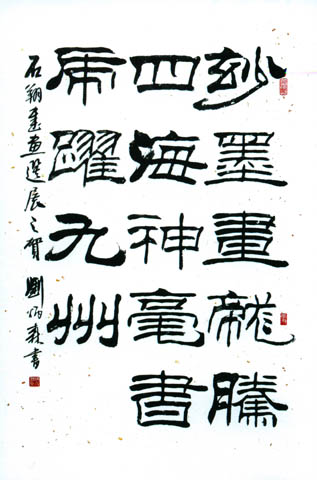 妙墨畫龍騰
四海神毫書
虎躍九州
石翔書畫選展之賀 劉炳森書